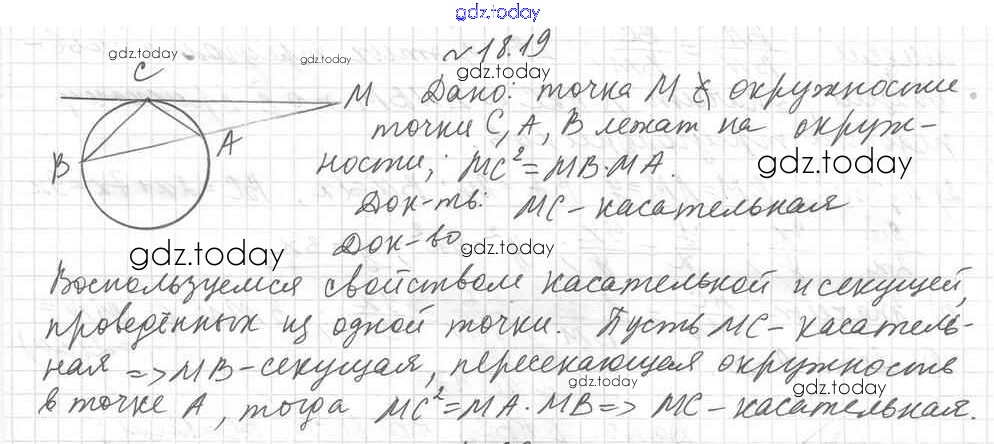 gdz.today
№18.19
gdz.today
gdz.today
gdz.today
C
M
A
B
Дано: точка M ∉ окружности
точки C, A, B лежат на окруж-
ности; MC²=MB·MA.
gdz.today
Док-ть: MC-касательная
Док-во
gdz.today
gdz.today
Воспользуемся свойством касательной и секущей,
проведённых из одной точки. Пусть MC-касатель-
ная => MB-секущая, пересекающая окружность
gdz.today
gdz.today
в точке A, тогда MC²=MA·MB=> MC-касательная.